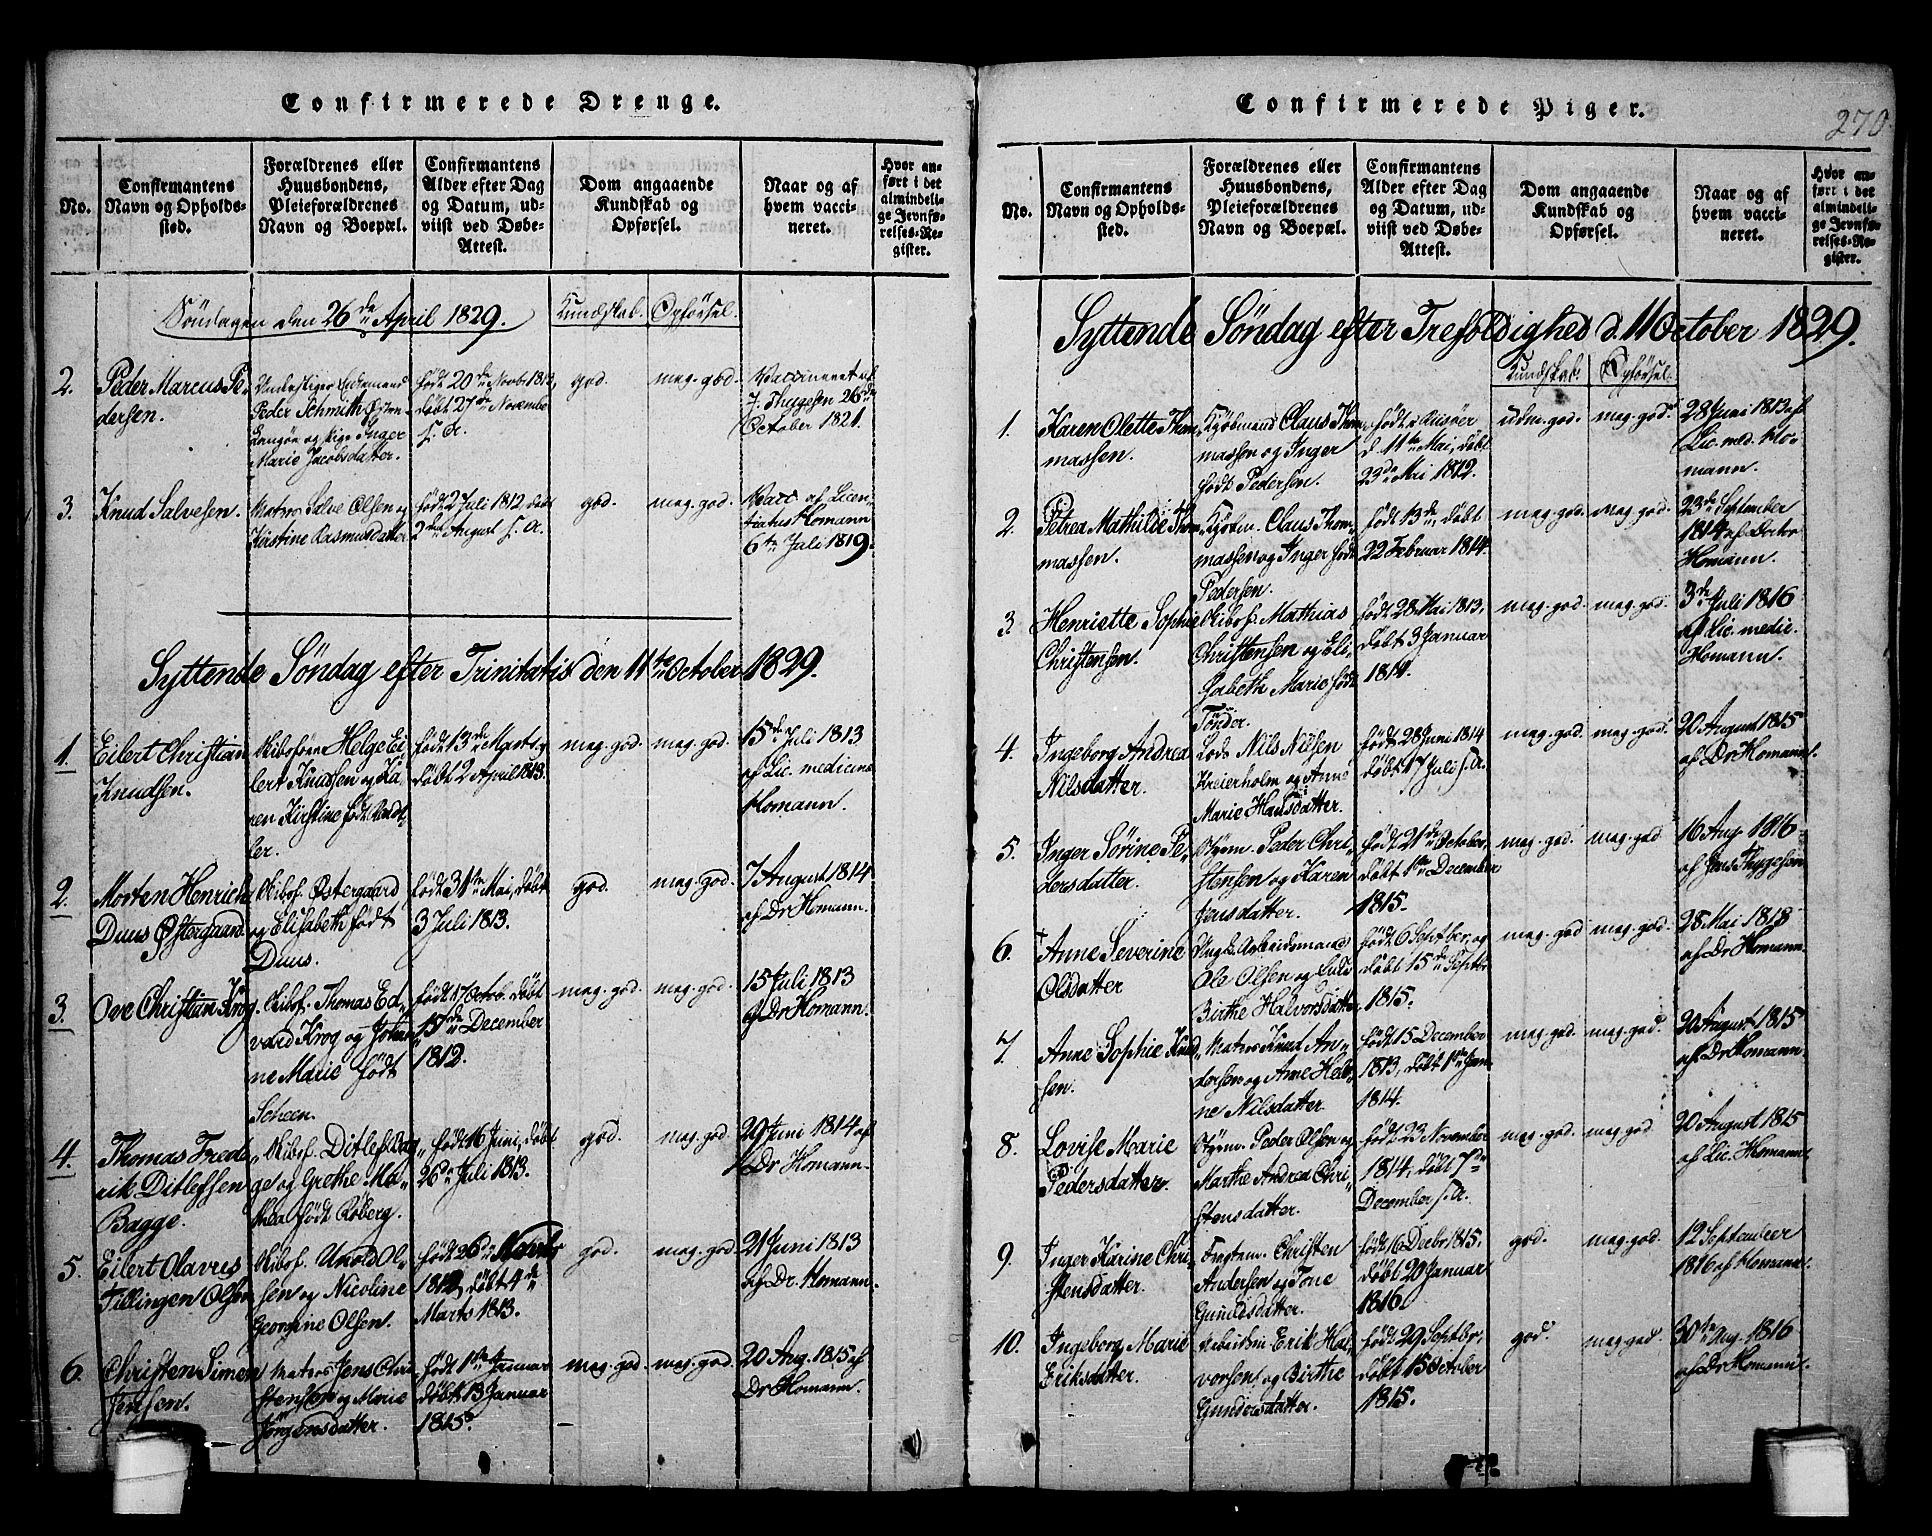 Confirmerede Drenge.
No.
Confirmantens
Navn og Opholds-
sted.
Forældrenes eller
Huusbondens,
Pleieforældrenes
Navn og Boepæl.
Confirmantens
Alder efter Dag
og Datum, ud-
viist ved Døbe-
Attest.
Dom angaaende
Kundskab og
Opførsel.
Naar og af
hvem vacci-
neret.
Hvor an-
ført i det
almindeli-
ge Jevnfø-
relses-Re-
gister.
Søndagen den 26de April 1829.
Kundskab. Opførsel.
2.
Peder Marcus Pe-
dersen.
Peder Schmith Østen
Langøe og Pige Inger
Marie Jacobsdatter.
født 20de Novbr 1813,
døbt 27de Novembr
s. A.
god.
meg. god.
Vaccineret af
J. Thygesen 26de
October 1821.
3.
Knud Salvesen.
Matros Salve Olsen og
Kirstine Rasmusdatter
født 2 Juli 1812 døbt
2den August s. A.
god.
meg. god.
Vacc. af Licen-
tiatus Homann
6te Juli 1819.
Syttende Søndag efter Trinitatis den 11te October 1829.
1.
Eilert Christian
Knudsen.
Skibsføer Helge Ei-
lert Knudsen og Ka-
ren Kirstine født
født 13de Marts,
døbt 2 April 1813.
meg. god.
meg. god.
15de Juli 1813
af Lic. medicinæ
Homann.
2.
Morten Henrich
Duus Østergaard
Skibsf. Østergaard
og Elisabeth født
Duus.
født 31te Mai, døbt
3 Juli 1813.
god.
meg. god.
7 August 1814
af Dr Homann.
3.
Ove Christian Krog
Skibsf. Thomas Ed-
vard Krog og Johan-
ne Marie født
Scheen.
født 17 Octob. døbt
15de December
1812.
meg. god.
meg. god.
15 Juli 1813
af Dr Homann.
4.
Thomas Frede-
rik Ditlefsen
Bagge.
Skibsf. Ditlef Bag-
ge og Grethe Ma-
thea født Roberg.
født 16 Juni, døbt
26de Juli 1813.
god.
meg. god.
29 Juni 1814 af
Dr Homann.
5.
Eilert Olavus
Tillingen Olsen
Skibsf. Unold Ol-
sen og Nicoline
Georgine Olsen.
født 26de Novbr
1812, døbt 4de
Marts 1813.
god.
meg. god.
21 Juni 1813
af Dr. Homann.
6.
Christen Simen
Jensen.
Matros Jens Chri-
stensen og Marie
Jörgensdatter.
født 1ste Januar
døbt 13 Januar
1815.
meg. god.
meg. god.
20 Aug. 1815 af
Dr Homann.
Confirmerede Piger.
270
No.
Confirmantens
Navn og Opholds-
sted.
Forældrenes eller
Huusbondens,
Pleieforældrenes
Navn og Boepæl.
Confirmantens
Alder efter Dag
og Datum, ud-
viist ved Døbe-
Attest.
Dom angaaende
Kundskab og
Opførsel.
Naar og af
hvem vacci-
neret.
Hvor an-
ført i det
almindeli-
ge Jevnfø-
relses-Re-
gister.
Syttende Søndag efter Trefoldighed d. 11 October 1829.
Kundskab. Opførsel.
1.
Karen Olette Thom-
massen.
Kjøbmand Claus Thom-
massen og Inger
født Pedersen.
født i Risøer
d 11te Mai, døbt
23de Mai 1812.
udm. god.
meg. god.
28 Juni 1813 af
Lic. med. Ho-
mann.
2.
Petrea Mathilde Thom-
massen.
Kjøbm. Claus Thom-
massen og Inger født
Pedersen.
født 13de, døbt
22 Februar 1814.
meg. god.
meg god.
23de September
1814 af Doctor
Homann.
3
Henriette Sophie
Christensen.
Skibsf. Mathias
Christensen og Eli-
sabeth Marie født
Tönder.
født 28 Mai 1813,
døbt 3 Januar
1814.
meg. god.
meg. god.
3de Juli 1816
af Lic. medic.
Homann.
4.
Ingeborg Andrea
Nilsdatter.
Lods Nils Nilsen
Kreierholm og Anne
Marie Hansdatter.
født 28 Juni 1814
døbt 17 Juli s. A.
meg. god.
meg. god.
20 August 1815
af Dr Homann.
5.
Inger Sørine Pe-
dersdatter.
Styrm. Peder Chri-
stensen og Karen
Jensdatter.
født 21de October,
døbt 1ste December
1815.
meg. god.
meg. god
16 Aug. 1816
af Jens Thygesen
6.
Anne Severine
Olsdatter
Arbeidsmand
Ole Olsen og
Birthe Halvorsdatter
født 6 Septbr, og
døbt 15de Septbr
1815.
meg. god
meg. god.
28 Mai 1818
af Dr Homann.
7.
Anne Sophie Knud-
sen.
Matros Knud An-
dersen og Anne Hele-
ne Nilsdatter
født 15 December
1813, døbt 1ste Jan.
1814.
meg god.
meg. god.
20 August 1815
af Dr Homann.
8.
Lovise Marie
Pedersdatter.
Styrm. Peder Olsen og
Marthe Andrea Chri-
stensdatter.
født 23 November
1814, døbt 7de
December s. A.
meg. god.
meg god
20 August 1815
af Lic. Homann.
9.
Inger Karine Chri-
stensdatter.
Christen
Andersen og Tone
Gundersdatter.
født 16 Decbr 1815,
døbt 20 Januar
1816.
god.
meg. god.
12 September
1816 af Homann.
10.
Ingeborg Marie
Eriksdatter.
Erik Hal-
vorsen og Birthe
Gundersdatter.
født 29 Septbr,
døbt 15 October
1815.
god.
meg god.
30te Aug. 1816
af Dr Homann.